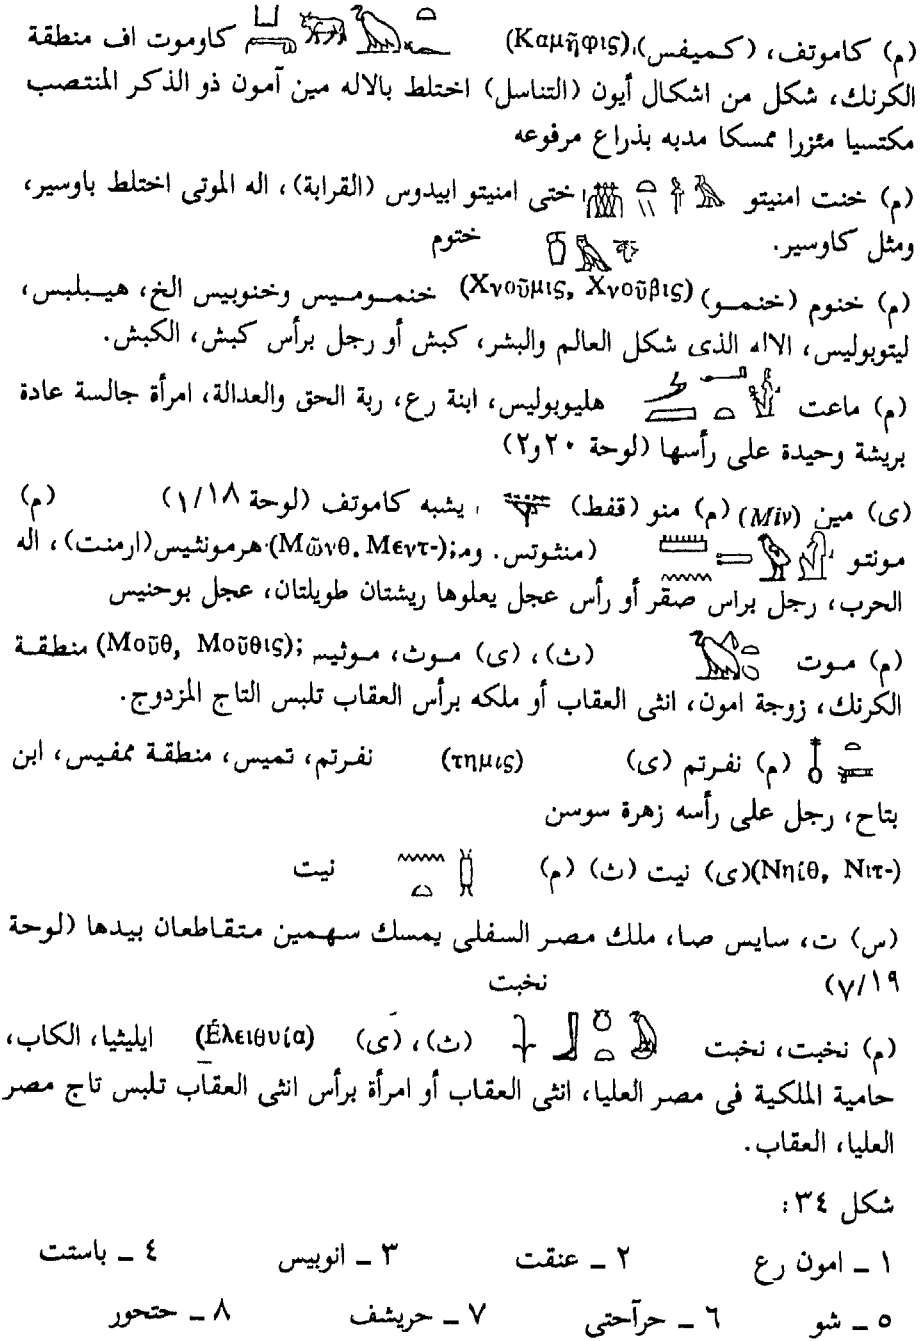 (م) كاموتف، (كميفس)، (Καμῆφις) كاوموت اف منطقة
الكرنك، شكل من اشكال أيون (التناسل) اختلط بالاله مين آمون ذو الذكر المنتصب
مكتسيا مئزرا ممسكا مدبه بذراع مرفوعه
(م) خنت امنيتو ختى امنيتو ابيدوس (القرابة)، اله الموتى اختلط باوسير،
ومثل كاوسير. ختوم
(م) خنوم (خنمـو) (Χνοῦμις, Χνοῦβις) خنمـومـيس وخنوبيس الخ، هيـبلبس،
ليتوبوليس، الاله الذى شكل العالم والبشر، كبش أو رجل برأس كبش، الكبش.
(م) ماعت هليوبوليس، ابنة رع، ربة الحق والعدالة، امرأة جالسة عادة
بريشة وحيدة على رأسها (لوحة ٢٠ و٢)
(ى) مين (Μiν) (م) منو (قفط) يشبه كاموتف (لوحة ١/١٨) (م)
مونتو (منثوتس. ومـ; (Μῶνθ. Μεντ-) هرمونثيس (ارمنت)، اله
الحرب، رجل براس صقر أو رأس عجل يعلوها ريشتان طويلتان، عجل بوحنيس
(م) مـوت (ث)، (ى) مـوث، مـوثيـس; (Μοῦθ, Μοῦθις) منطقـة
الكرنك، زوجة امون، انثى العقاب أو ملكه برأس العقاب تلبس التاج المزدوج.
(م) نفـرتم (ى) (τημις) نفـرتم، تميس، منطقـة ممفـيس، ابن
بتاح، رجل على رأسه زهرة سوسن
(Νηίθ, Νιτ-) (ى) نيت (ث) (م) نيت
(س) ت، سايس صـا، ملك مـصـر السفلى يمسك سـهـمين مـتـقـاطعان بيدها (لوحة
٧/١٩) نخبت
(م) نخبت، نخبت (ث)، (ى) (Ἐλειθυία) ايليثيا، الكاب،
حامية الملكية فى مصر العليا، انثى العقاب أو امرأة برأس انثى العقاب تلبس تاج مصر
العليا، العقاب.
شكل ٣٤:
١ ـ امون رع ٢ ـ عنقت ٣ ـ انوبيس ٤ ـ باستت
٥ ـ شو ٦ ـ حرآحتى ٧ ـ حريشف ٨ ـ حتحور